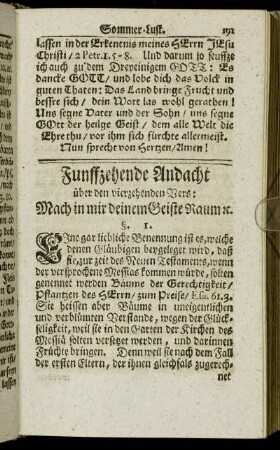 Sommer-Lust. 191
lassen in der Erkentnis meines HErrn JEsu
Christi/ 2 Petr. 1. 5-8. Und darum so seuffze
ich auch zu dem Dreyeinigem GOTT: Es
dancke GOTT/ und lobe dich das Volck in
guten Thaten: Das Land bringe Frucht und
bessre sich/ dein Wort las wohl gerathen!
Uns segne Vater und der Sohn/ uns segne
GOtt der heilge Geist/ dem alle Welt die
Ehre thu/ vor ihm sich fürchte allermeist.
Nun sprecht von Hertzen/ Amen!
Funffzehende Andacht
über den vierzehenden Vers:
Mach in mir deinem Geiste Raum ꝛc.
§. 1.
EJne gar liebliche Benennung ist es, welche
denen Gläubigen beygeleget wird, daß
sie, zur zeit des Neuen Testaments, wenn
der versprochene Messias kommen würde, solten
genennet werden Bäume der Gerechtigkeit/
Pflantzen des HErrn/ zum Preise/ Esa. 61. 3.
Sie heissen aber Bäume in uneigentlichen
und verblümten Verstande, wegen der Glück-
seligkeit, weil sie in den Garten der Kirchen des
Messiä solten versetzet werden, und darinnen
Früchte bringen. Denn weil sie nach dem Fall
der ersten Eltern, der ihnen gleichfals zugerech-
net